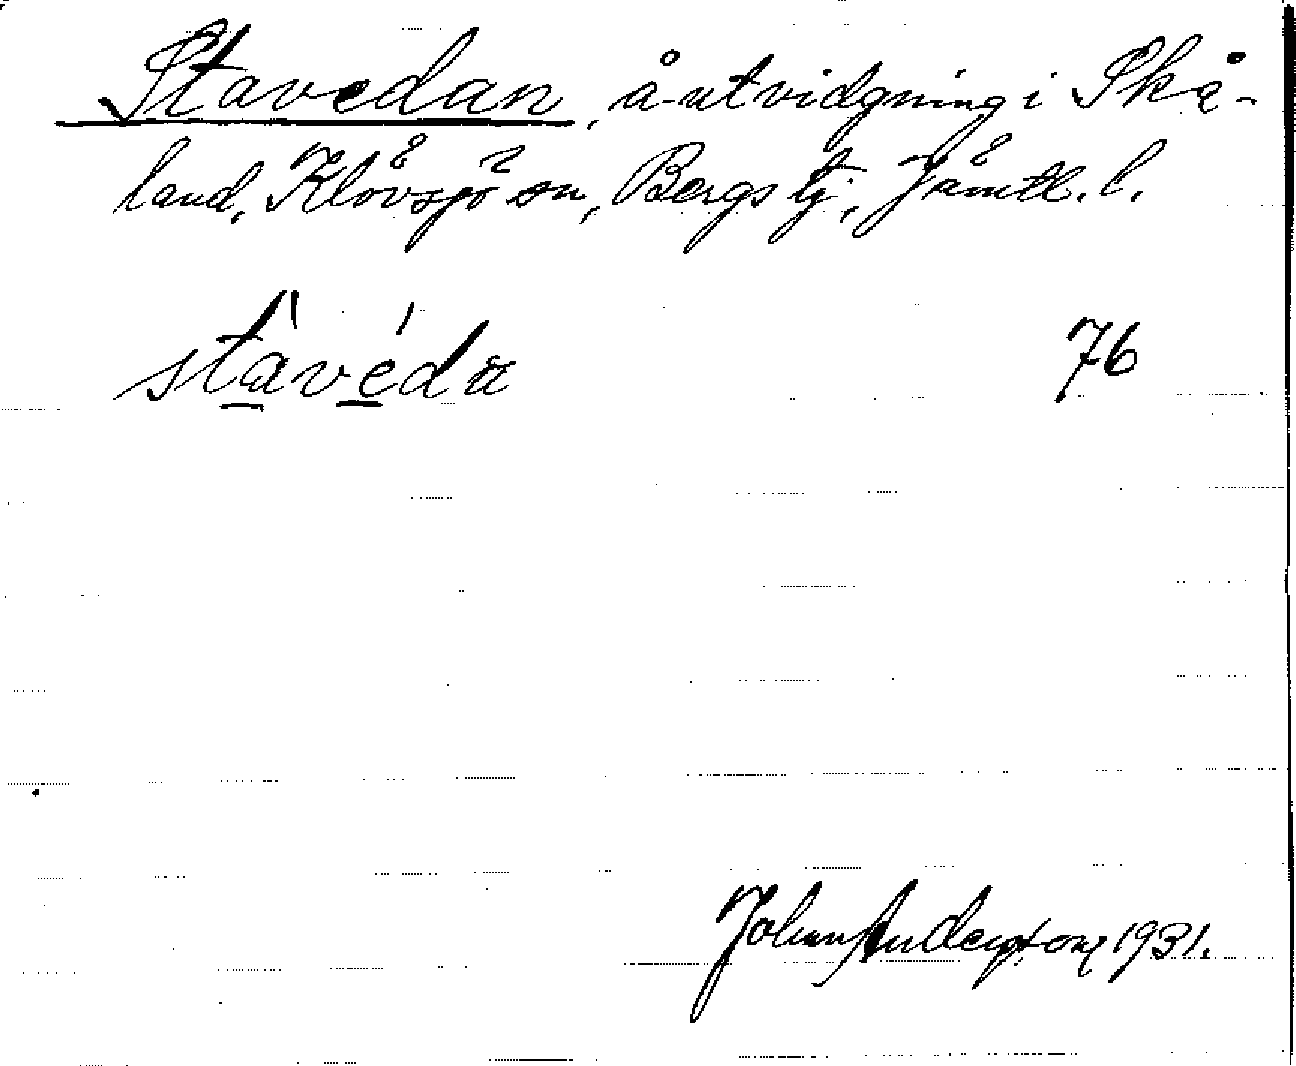 Stavedan, å-utvidgning i Skå-
land, Klövsjö sn, Bergs tj, Jämtl. l.
stàvéda 76
Johan Andersson 1931.